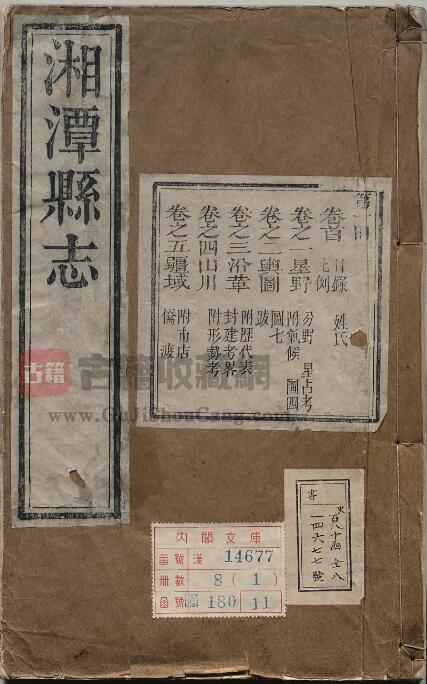 湘潭縣志
第一冊
卷首 目錄 姓氏
凡例
卷之一星野 分野 星占考
附氣候 圖四
卷之二輿圖 圖七
跋
卷之三沿革 附歷代表
封建考畧
卷之四山川 附形勢考
卷之五疆域 附市店
橋渡
古籍
古籍收藏網
www.GuJiShouCang.com
內閣文庫
番號 漢 14677
冊數 8 (1)
函號 180 11
一四六七七號